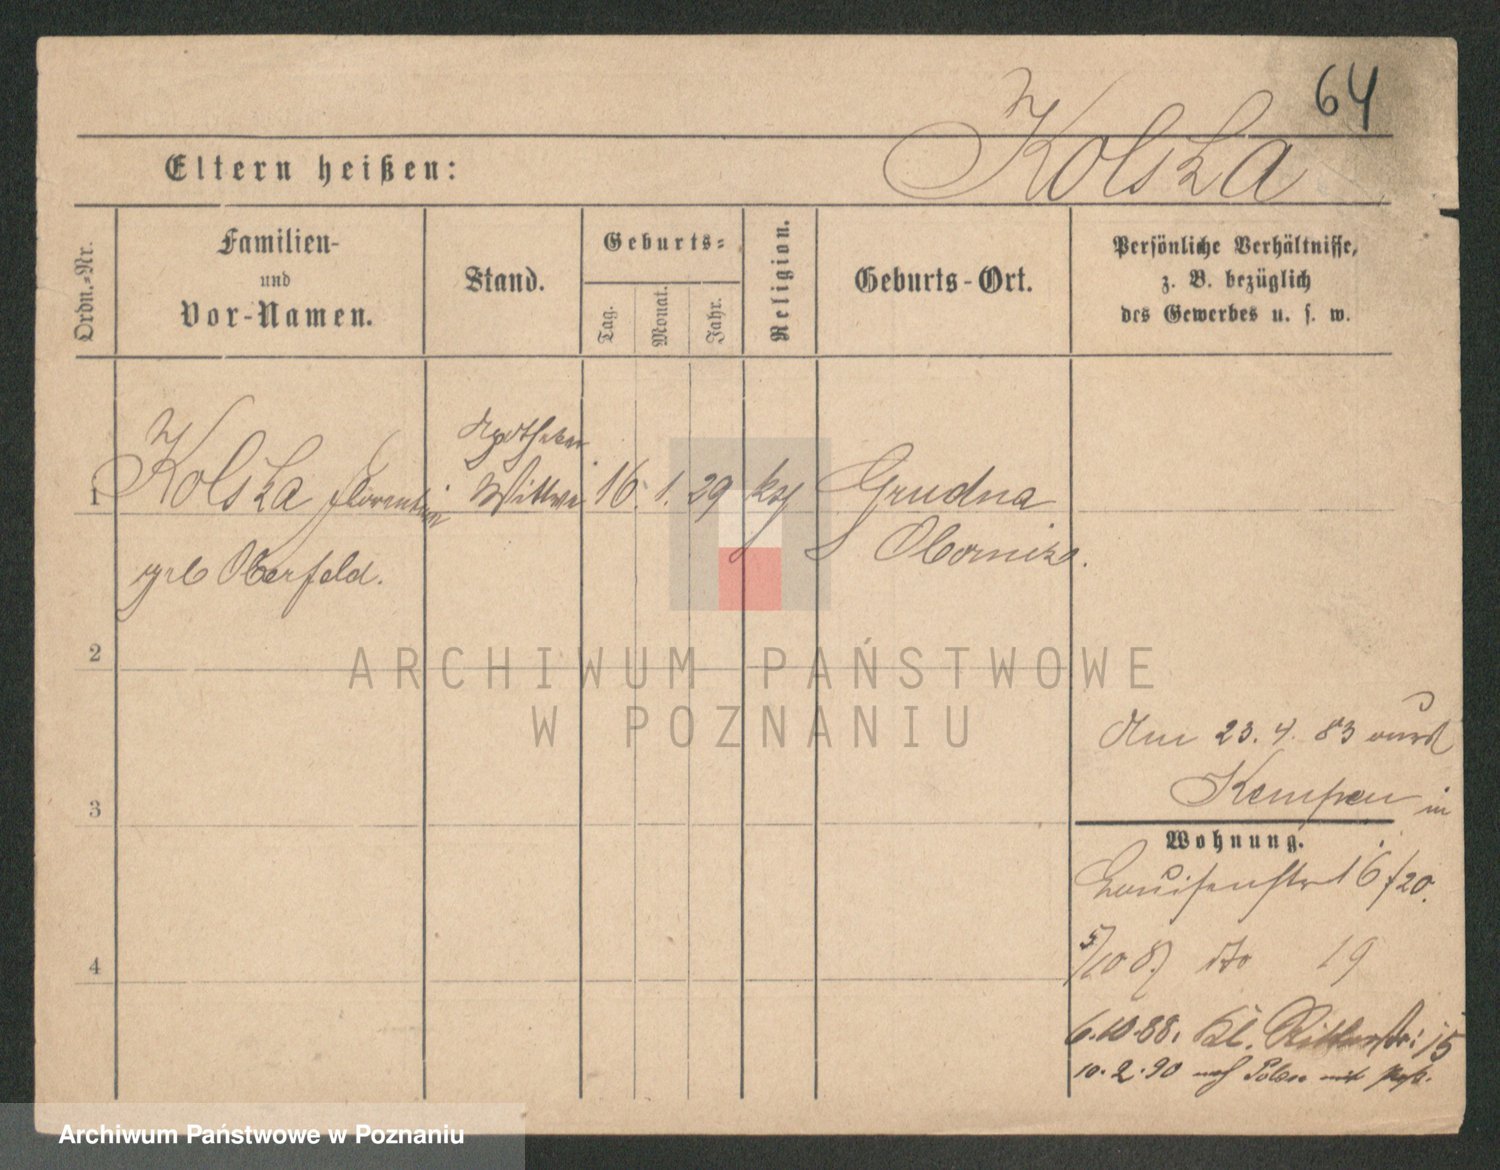 64
Kolska
Eltern heißen:
Ordn.-Nr.
Familien-
und
Vor-Namen.
Stand.
Geburts-
Tag.
Monat.
Jahr.
Religion.
Geburts-Ort.
Persönliche Verhältnisse,
z. B. bezüglich
des Gewerbes u. s. w.
1
Kolska Florentine
geb Oberfeld.
Apotheker
Wittwe
16. 1. 29
Grudna
Obornik.
2
3
4
Am 23. 4. 83 aus
Kempen in
Wohnung.
Louisenstr 16/20.
5/10 87 dto 19
6.10.88. Kl. Ritterstr: 15
10.2.90 nach Polen mit
ARCHIWUM PAŃSTWOWE
W POZNANIU
Archiwum Państwowe w Poznaniu